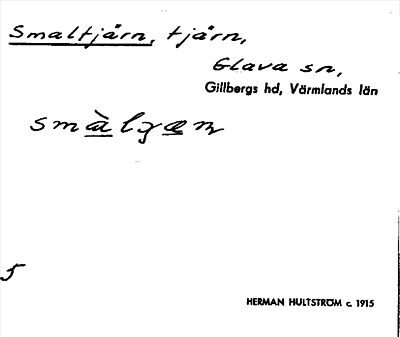 Smaltjärn, tjärn,
Glava sn,
Gillbergs hd, Värmlands län
smàlȝæn
5
HERMAN HULTSTRÖM c. 1915